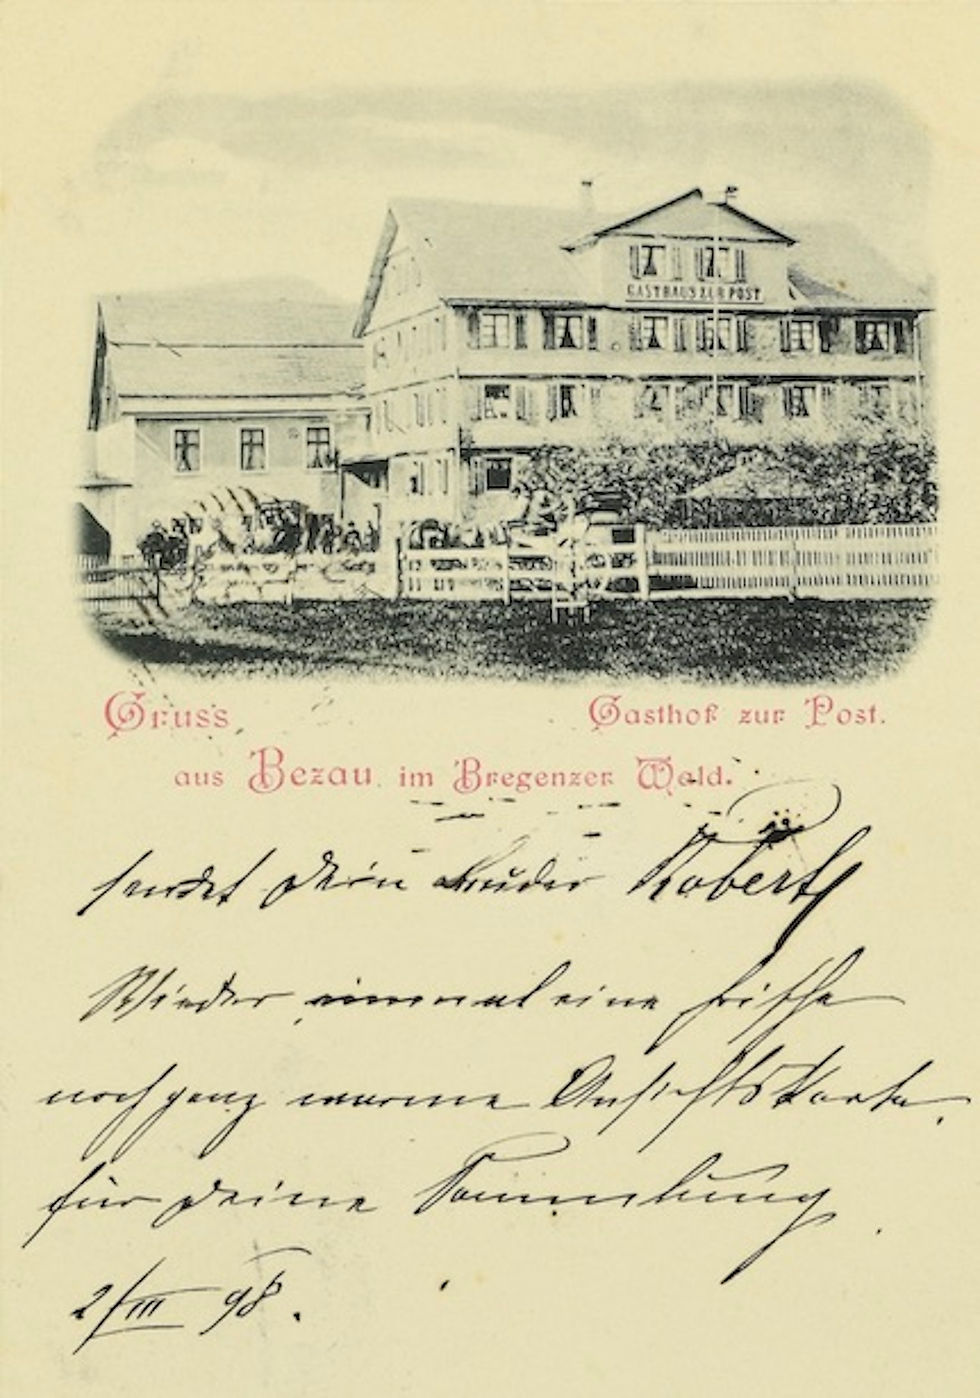 GASTHAUS ZUR POST
Gruss Gasthof zur Post.
aus Bezau im Bregenzer Wald.
sendet Dein Bruder Robert
Wieder einmal eine frische
noch ganz warme Ansichtskarte
für Deine Sammlung
2/III 98.